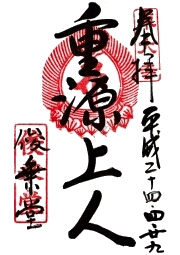 奉拝
平成二十四・四・廿九
重源上人
俊乗堂